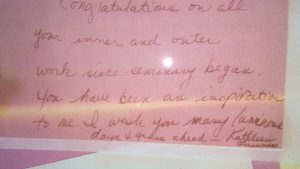 Congratulations on all
your inner and outer
work since seminary began.
You have been an inspiration
to me. I wish you many
days & years ahead - Kathleen